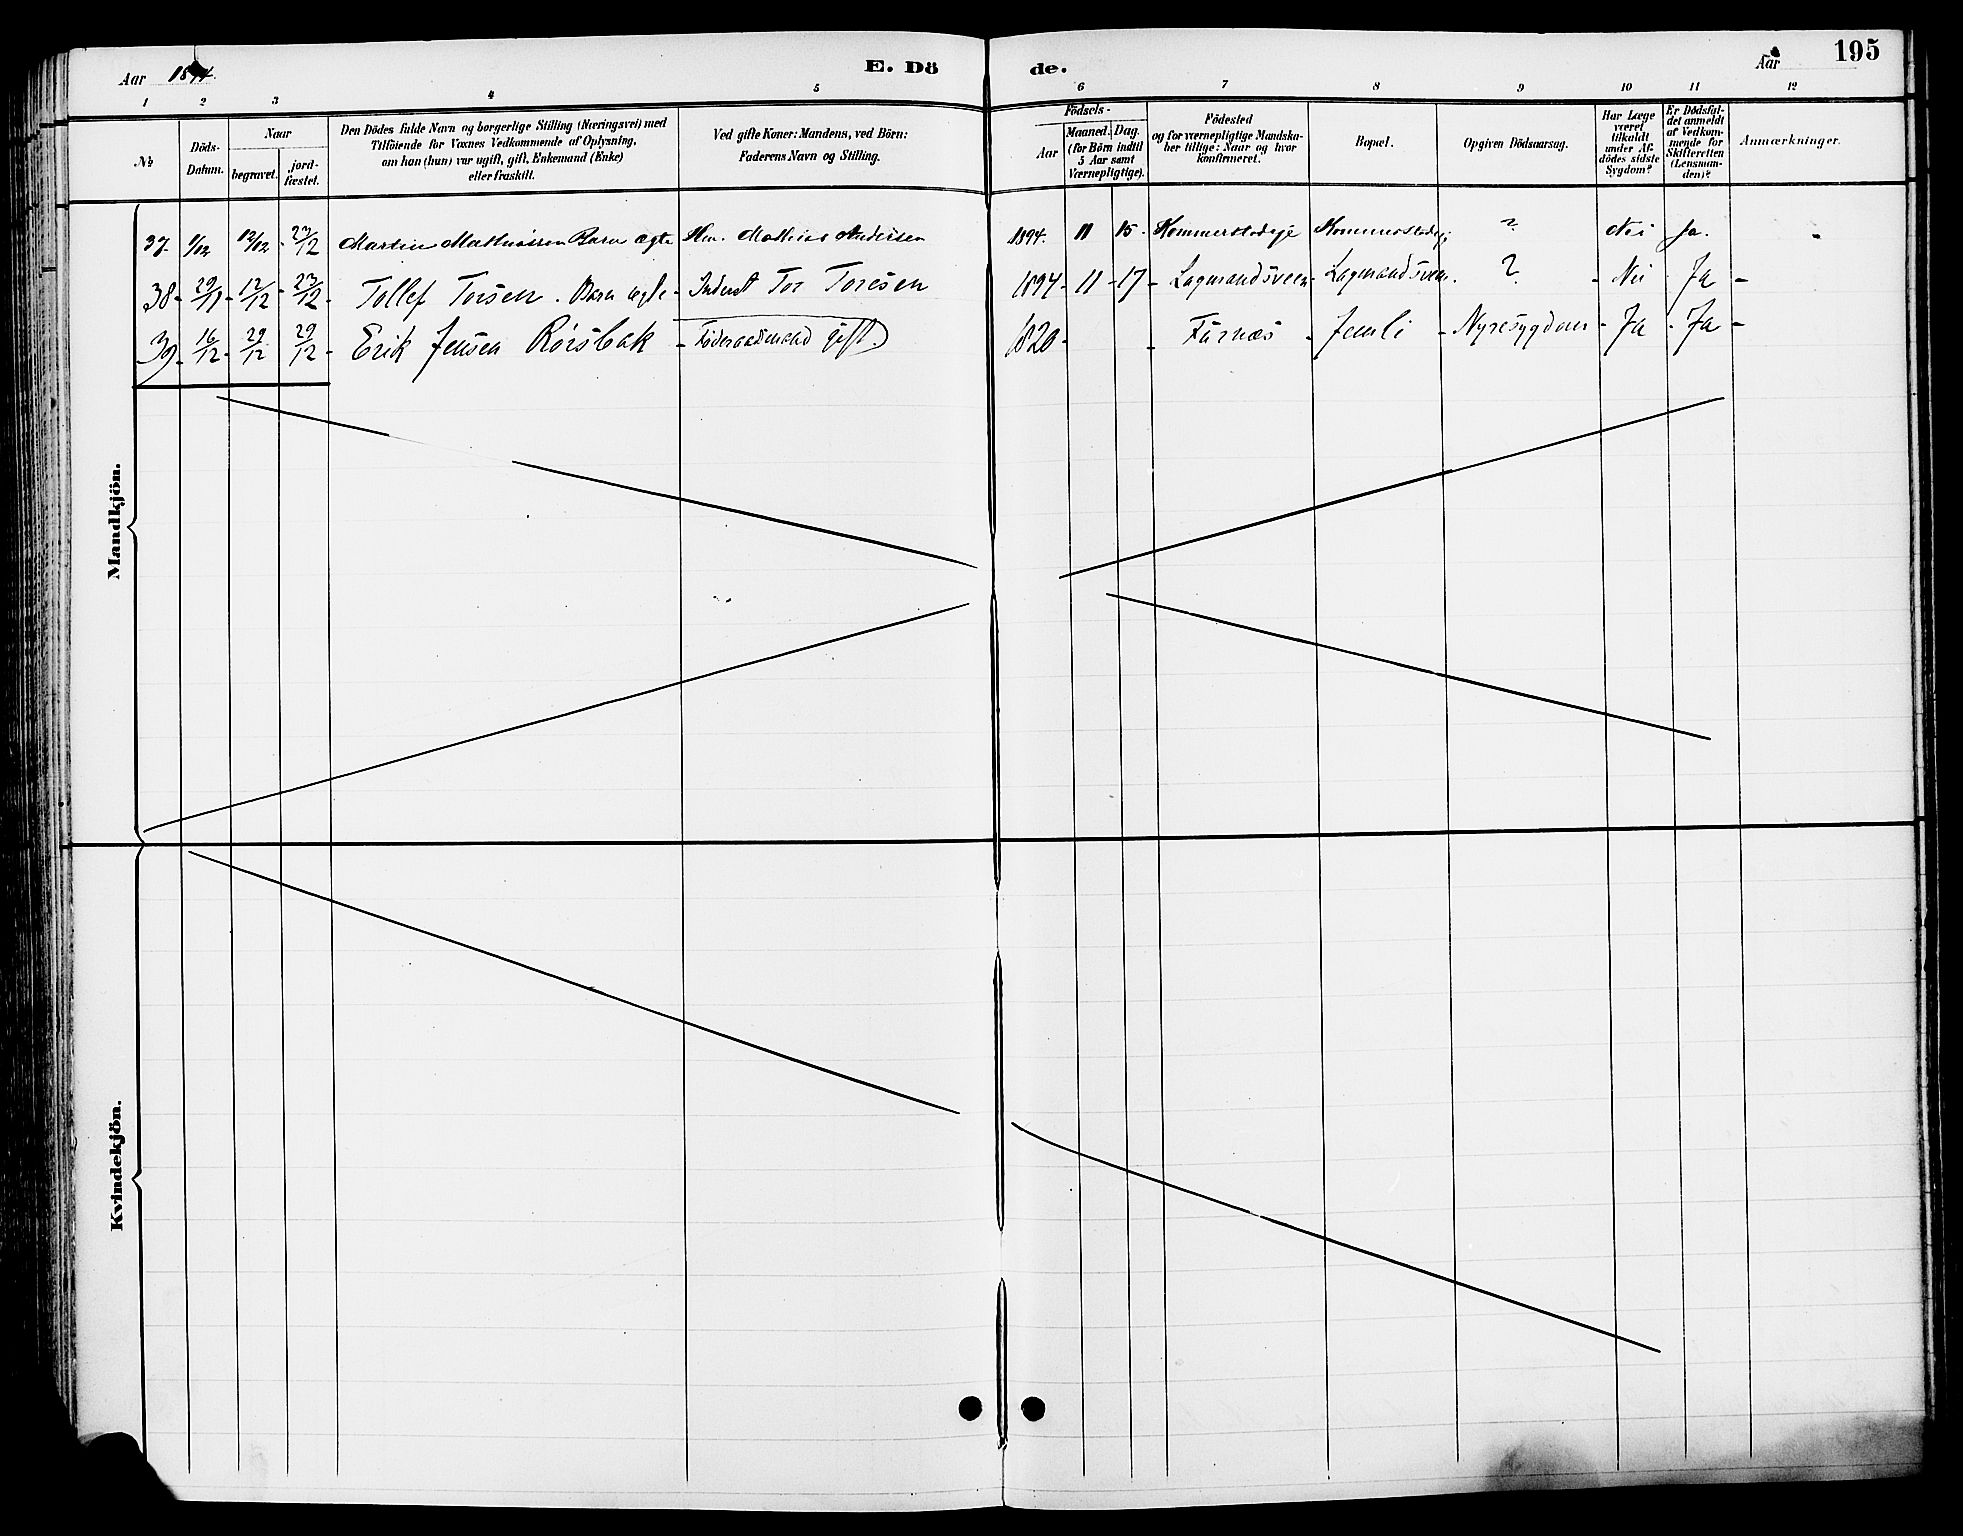 Aar 1894. E. Dö de. Aar 195
1 2 3 4 5 6 7 8 9 10 11 12
No
Döds-
Datum.
Naar
begravet.
jord-
fæstet.
Den Dödes fulde Navn og borgerlige Stilling (Næringsvei) med
Tilföiende for Voxnes Vedkommende af Oplysning,
om han (hun) var ugift, gift, Enkemand (Enke)
eller fraskilt.
Ved gifte Koner: Mandens, ved Börn:
Faderens Navn og Stilling.
Födsels-
Aar
Maaned. Dag.
(for Börn indtil
5 Aar samt
Værnepligtige).
Födested
og for værnepligtige Mandska-
ber tillige: Naar og hvor
konfirmeret.
Bopæl.
Opgiven Dödsaarsag.
Har Læge
været
tilkaldt
under Af-
dödes sidste
Sygdom?
Er Dödsfal-
det anmeldt
af Vedkom-
mende for
Skifteretten
(Lensman-
den)?
Anmærkninger.
Mandkjön.
37. 9/12 12/12 - 23/12 Martin Mathiassen Barn ægte Hm. Mathias Andersen 1894. 11 15 - ? Nei Ja. -
38 - 29/11 - 12/12 - 23/12 - Tollef Torsen . Barn ægte - Inderst Tor Toresen 1894 - 11 - 17 - Lagmandsveen - Lagmandsveen. ? - Nei - Ja -
39 - 16/12 - 29/12 29/12 - Erik Jensen Rörsbak - Föderaadsmand gift. 1820 - - Furnæs - Jemli - Nyresygdom - Ja - Ja -
Kvindekjön.